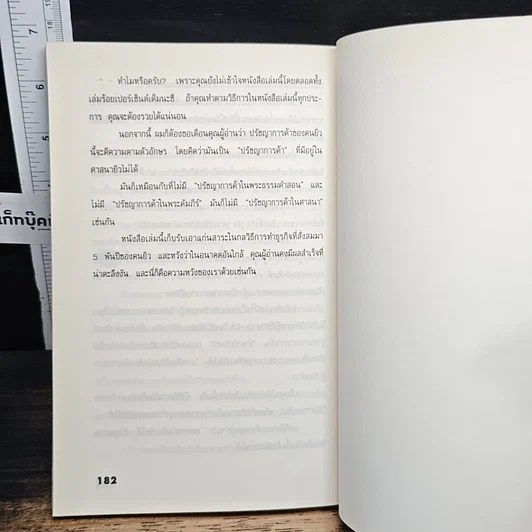 ทำไมหรือครับ? เพราะคุณยังไม่เข้าใจหนังสือเล่มนี้โดยตลอดทั้ง
เล่มร้อยเปอร์เซ็นต์เต็มนะซี ถ้าคุณทำตามวิธีการในหนังสือเล่มนี้ทุกประ-
การ คุณจะต้องรวยได้แน่นอน
นอกจากนี้ ผมก็ต้องขอเตือนคุณผู้อ่านว่า ปรัชญาการค้าของคนยิว
นี้จะตีความตามตัวอักษร โดยคิดว่ามันเป็น "ปรัชญาการค้า" ที่มีอยู่ใน
ศาสนายิวไม่ได้
มันก็เหมือนกับที่ไม่มี "ปรัชญาการค้าในพระธรรมคำสอน" และ
ไม่มี "ปรัชญาการค้าในพระคัมภีร์" มันก็ไม่มี "ปรัชญาการค้าในศาสนา"
เช่นกัน
หนังสือเล่มนี้เก็บรับเอาแก่นสาระในกลวิธีการทำธุรกิจที่สั่งสมมา
5 พันปีของคนยิว และหวังว่าในอนาคตอันใกล้ คุณผู้อ่านคงมีผลสำเร็จที่
น่าตะลึงงัน และนี่ก็คือความหวังของเราด้วยเช่นกัน
182
7
8